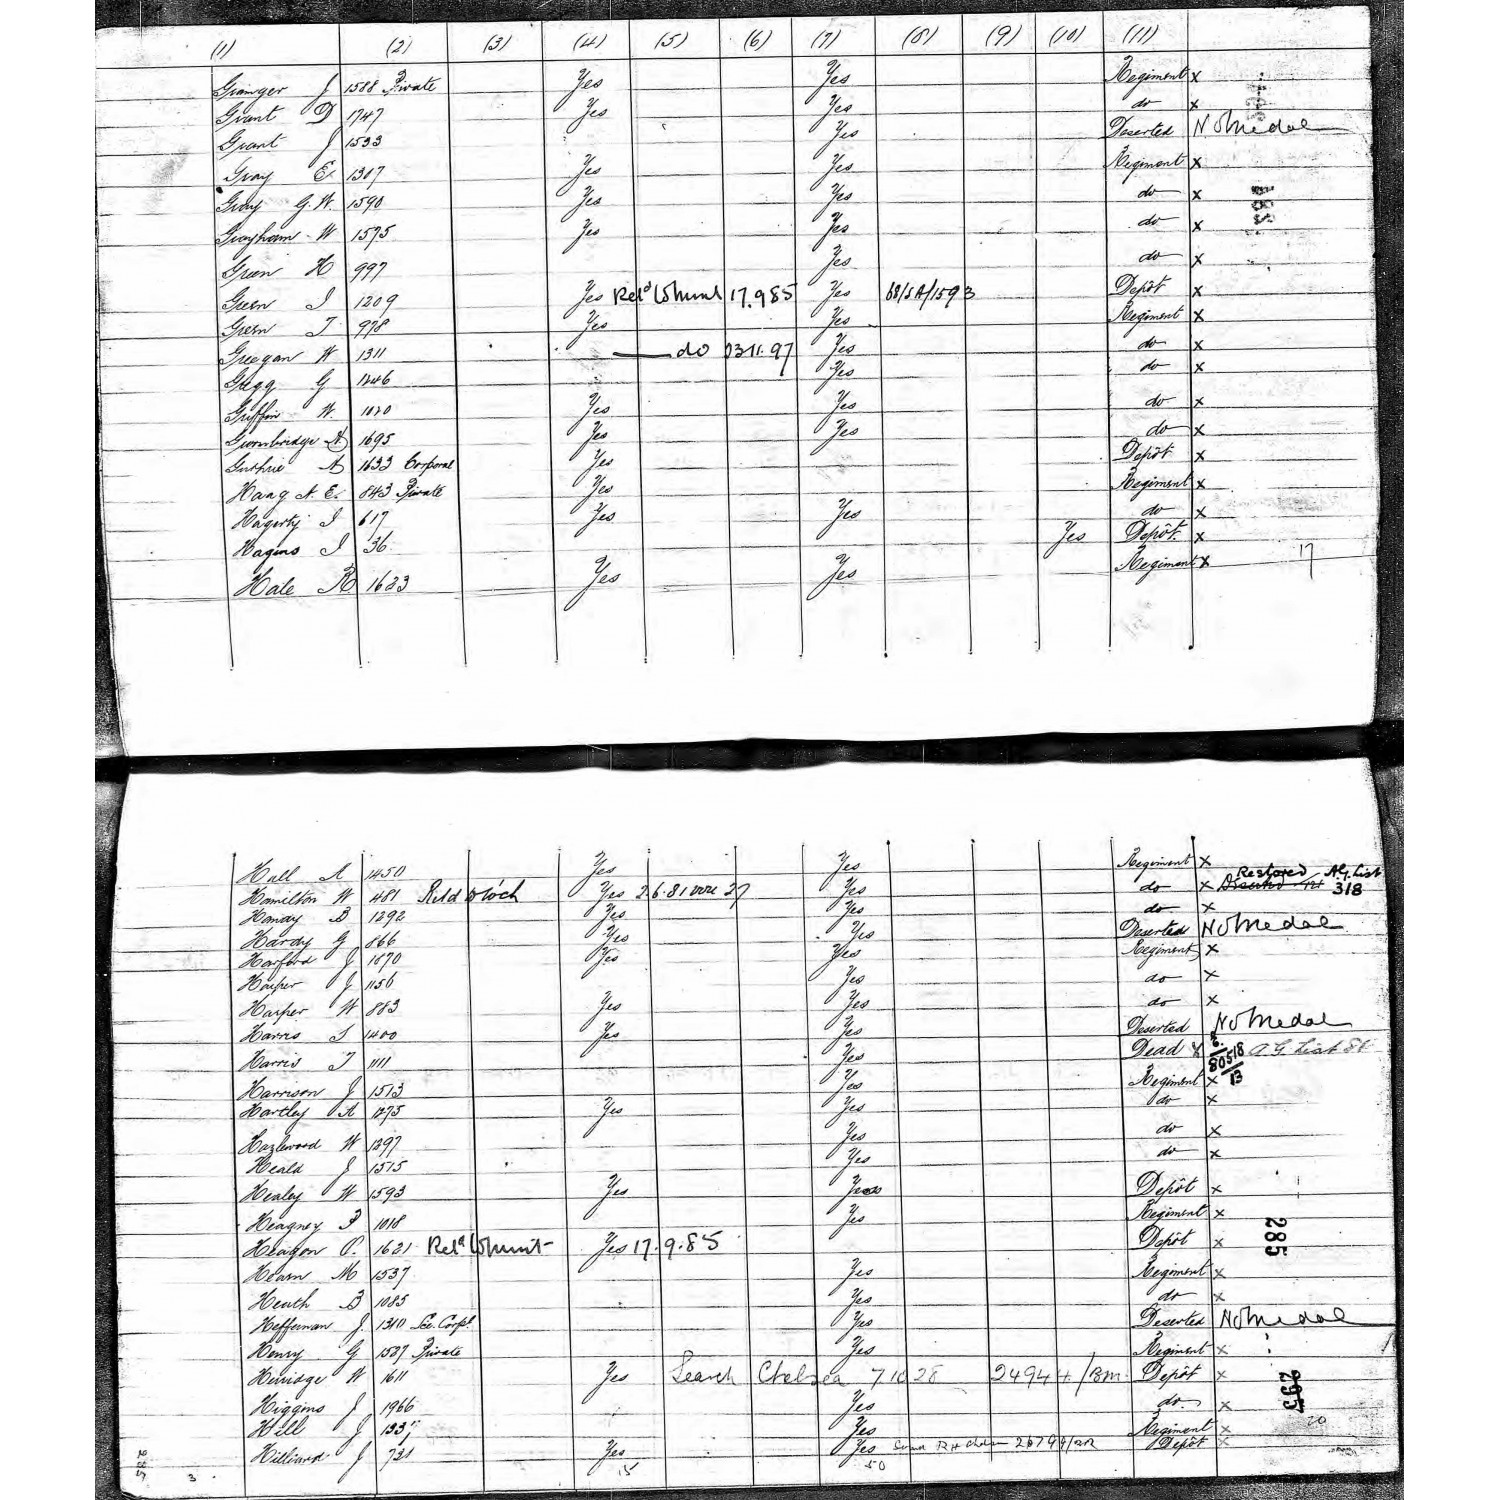 (1) (2) (3) (4) (5) (6) (7) (8) (9) (10) (11)
Grainger J 1588 Private Yes Yes Regiment x
Grant D 1747 Yes Yes do x
Grant J 1533 Yes Deserted No Medal
Gray E 1307 Yes Yes Regiment x
Gray G.W. 1590 Yes Yes do x
Grayham W 1575 Yes Yes do x
Green H 997 Yes do x
Green J 1209 Yes 17.9.85 Yes 68/SA/1593 Depôt x
Green T 978 Yes Yes Regiment x
Greegan W 1311 do Yes do x
Gregg G 1246 Yes do x
Griffin W. Yes Yes do x
Groombridge 1695 Yes Yes do x
Guthrie A 1633 Corporal Yes Depôt x
Haag A.E. 843 Private Yes Regiment x
Hagerty J 617 Yes Yes do x
Hagins J 36 Yes Depôt x
Hale R 1623 Yes Yes Regiment x
17
Hall A 1450 Yes Yes Regiment x
Hamilton W 481 Yes Yes do x Restored A.G. List 318
Handy B 1292 Yes Yes do x
Hardy G 866 Yes Yes Deserted No Medal
Harford J 1870 Yes Yes Regiment x
Harper J 1156 Yes do x
Harper W 883 Yes Yes do x
Harris S 1400 Yes Yes Deserted No Medal
Harris T 1111 Yes Dead x 80518/13 A.G. List
Harrison J 1513 Yes Regiment x
Hartley A 1275 Yes Yes do x
Hazlewood W 1297 Yes do x
Heald J 1515 Yes do x
Healey W 1593 Yes Yes Depôt x
Heagney P 1018 Yes Regiment x
Heagon P. 1621 Yes 17.9.85 Depôt x
285
Hearn M 1537 Yes Regiment x
Heath B 1085 Yes do x
Heffernan J. 1310 Yes Deserted No Medal
Henry G 1527 Private Yes Regiment x
Herridge W 1611 Yes Search Chelsea Depôt x
295
Higgins J 1966 Yes do x
Hill J Yes Regiment x
20
Hilliard J 721 Yes Yes Depôt x
3 15 50